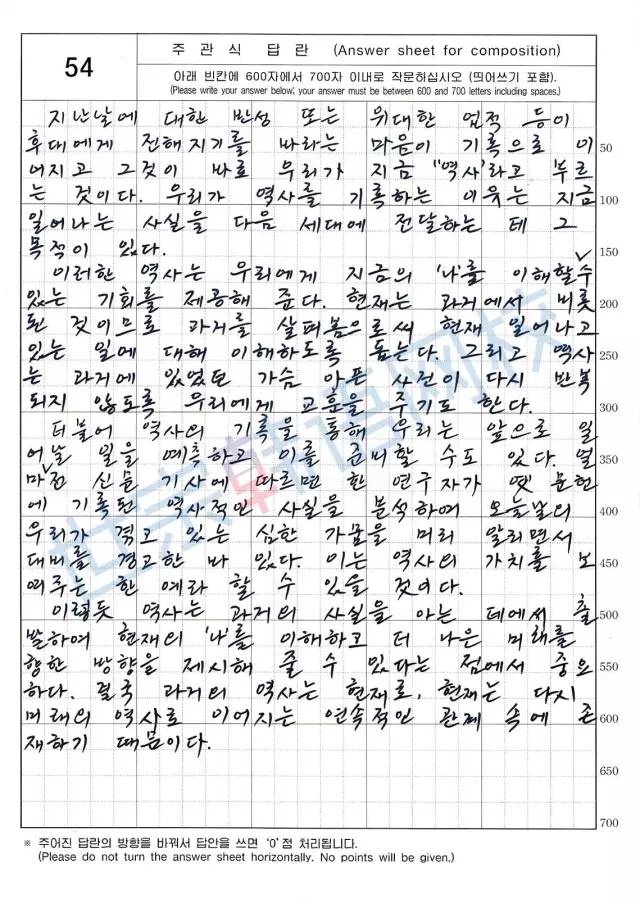 54
주 관 식 답 란 (Answer sheet for composition)
아래 빈칸에 600자에서 700자 이내로 작문하십시오 (띄어쓰기 포함).
(Please write your answer below; your answer must be between 600 and 700 letters including spaces.)
지난날에 대한 반성 또는 위대한 업적 등이
후대에게 전해지기를 바라는 마음이 기록으로 이 50
어지고 그것이 바로 우리가 지금 "역사'라고 부르
는 것이다. 우리가 역사를 기록하는 이유는 지금 100
일어나는 사실을 다음 세대에 전달하는 테 그
목적이 있다. 150
이러한 역사는 우리에게 지금의 '나'를 이해할∨수
있는 기회를 제공해 준다. 현재는 과거에서 비롯 200
된 것이므로 과거를 살펴봄으로써 현재 일어나고
있는 일에 대해 이해하도록 돕는다. 그리고 역사 250
는 과거에 있었던 가슴 아픈 사건이 다시 반복
되지 않도록 우리에게 교훈을 주기도 한다. 300
더불어 역사의 기록을 통해 우리는 앞으로 일
어날 일을 예측하고 이를 준비할 수도 있다. 얼 350
마∨전 신문 기사에 따르면 한 연구자가 옛 문헌
에 기록된 역사적인 사실을 분석하여 오늘날의 400
우리가 겪고 있는 심한 가뭄을 미리 알리면서
대비를 경고한 바 있다. 이는 역사의 가치를 보 450
여주는 한 예라 할 수 있을 것이다.
이렇듯 역사는 과거의 사실을 아는 데에서 출 500
발하여 현재의 '나'를 이해하고 더 나은 미래를
향한 방향을 제시해 줄 수 있다는 점에서 중요 550
하다. 결국 과거의 역사는 현재로, 현재는 다시
미래의 역사로 이어지는 연속적인 관계 속에 존 600
재하기 때문이다.
650
700
세종韩语网校
※ 주어진 답란의 방향을 바꿔서 답안을 쓰면 '0'점 처리됩니다.
(Please do not turn the answer sheet horizontally. No points will be given.)